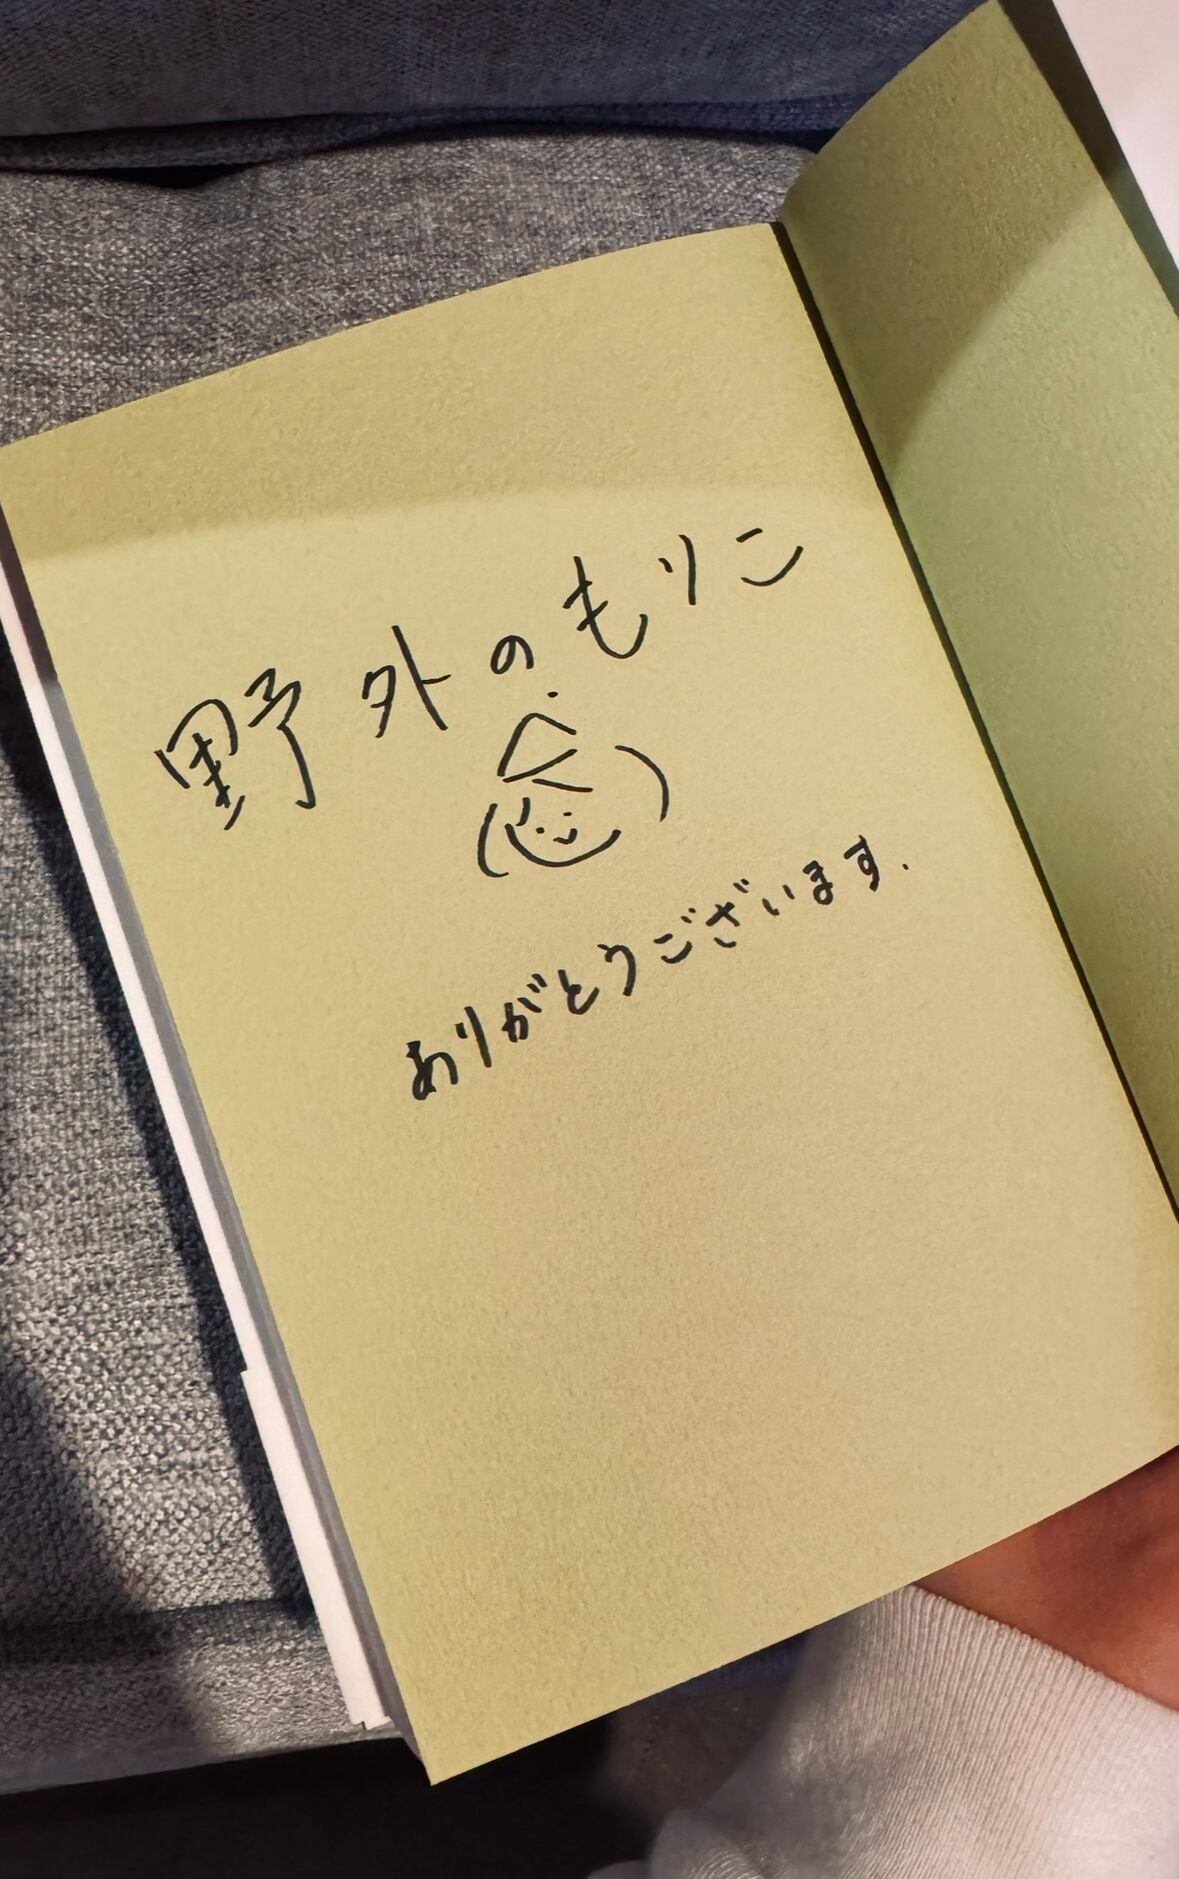 野外のもりこ
ありがとうございます.